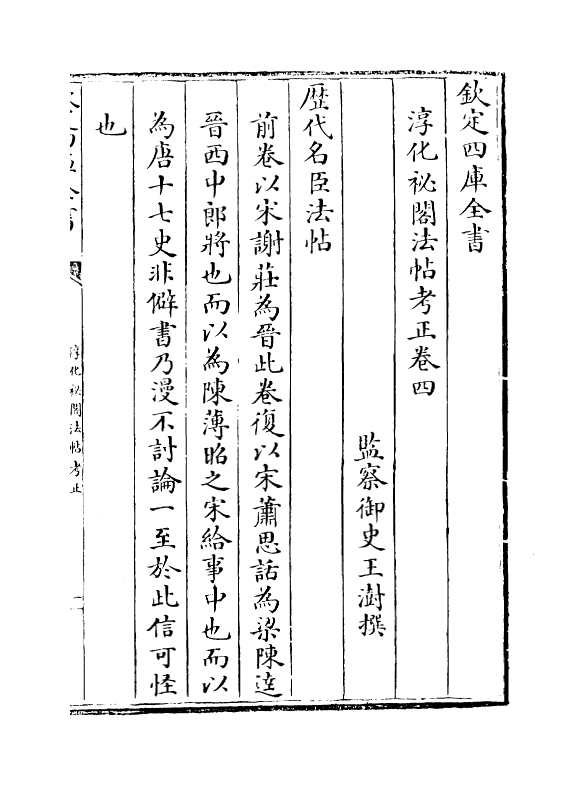 欽定四庫全書
淳化祕閣法帖考正卷四
監察御史王澍撰
歴代名臣法帖
前卷以宋謝莊為晉此卷復以宋蕭思話為梁陳逵
晉西中郎將也而以為陳薄昭之宋給事中也而以
為唐十七史非僻書乃漫不討論一至於此信可怪
也
淳化祕閣法帖考正